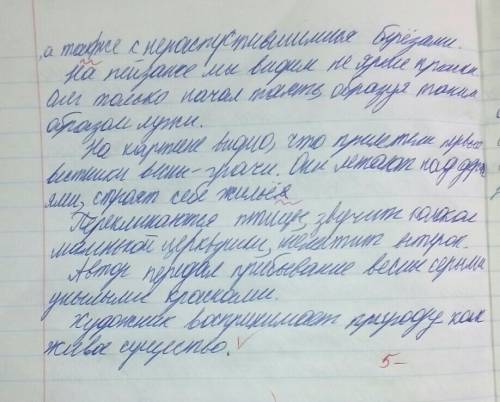 а также с нераспустившимися берёзами.
На пейзаже мы видим не яркие краски.
Снег только начал таять, образуя таким
образом лужи.
На картине видно, что прилетели первые
вестники весны-грачи. Они летают над дерев
ями, строят себе жильё.
Перекликаются птицы, звучит колокол
маленькой церквушки, шелестит ветерок.
Автор передал прибывание весны серыми
унылыми красками.
Художник воспринимает природу как
живое существо.
5-